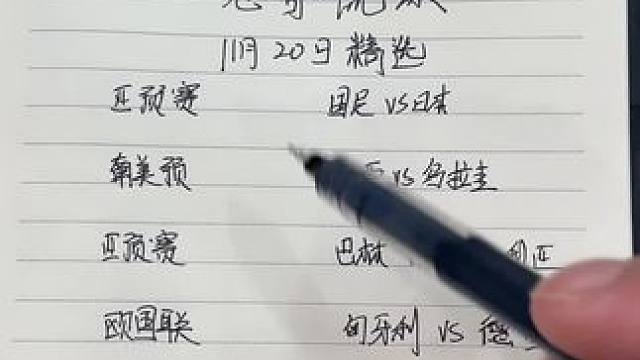 11月20日精选
亚预赛 国足 VS 日本
南美预 VS 乌拉圭
亚预赛 巴林
欧国联 匈牙利 VS 德